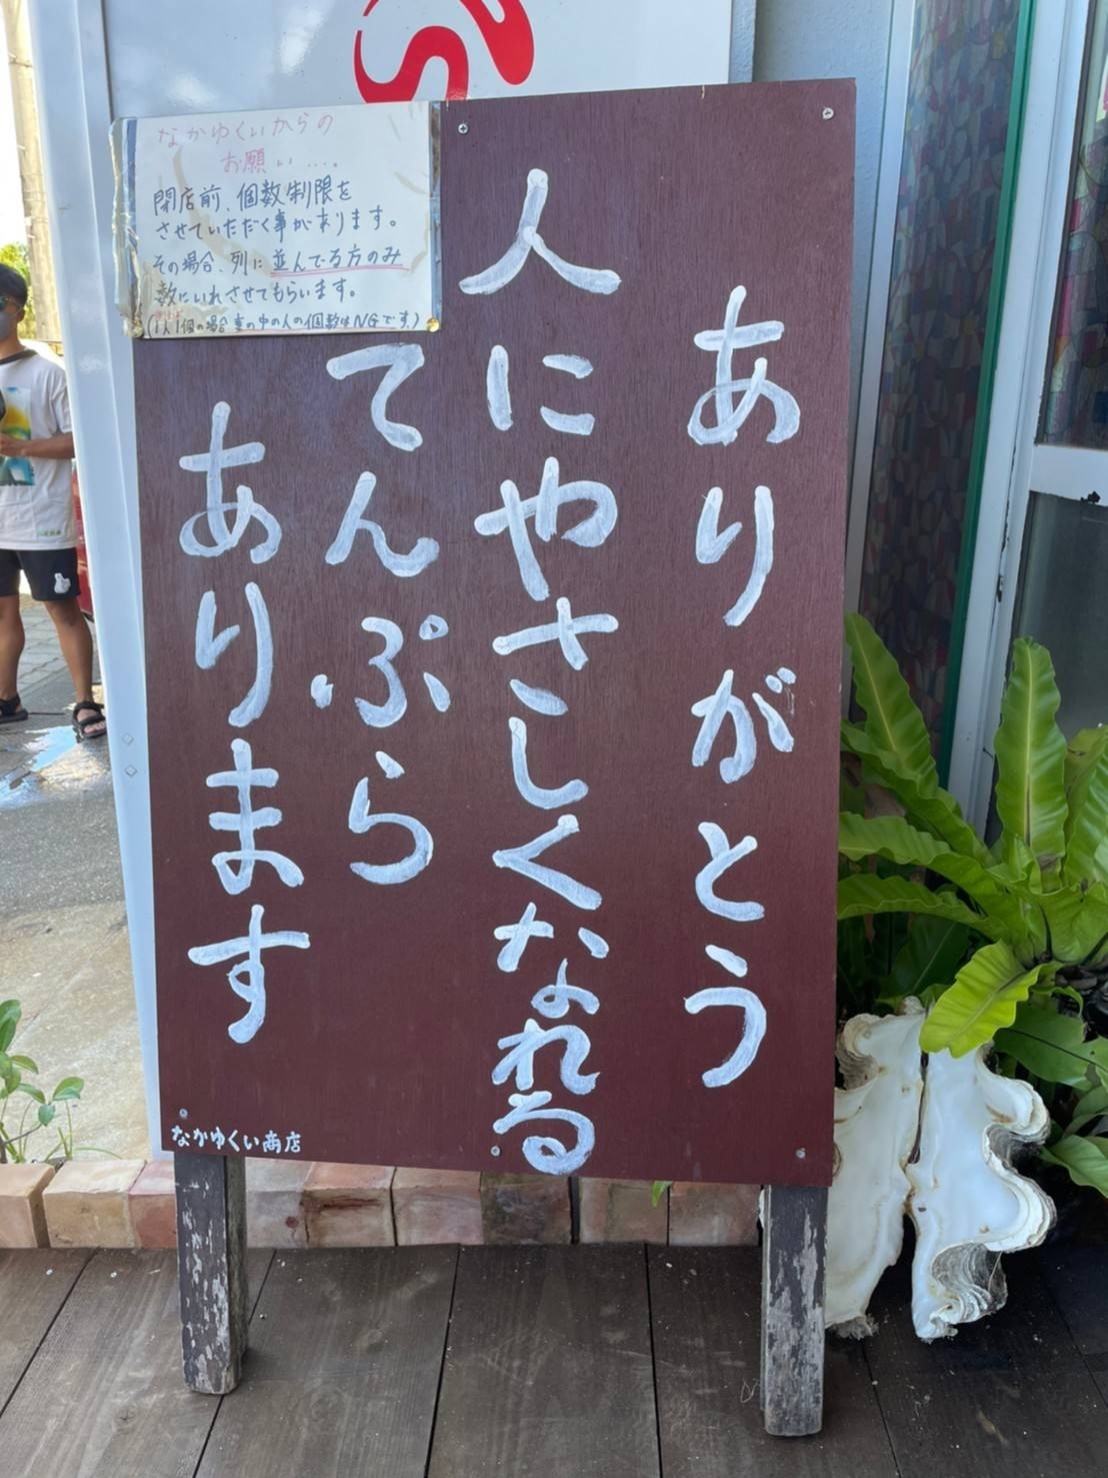 ありがとう
人にやさしくなれる
てんぷら
あります
なかゆくい商店
なかゆくいからの
お願い….
閉店前、個数制限を
させていただく事があります。
その場合、列に並んでる方のみ
数にいれさせてもらいます。
(1人1個の場合 車の中の人の個数はNGです。)